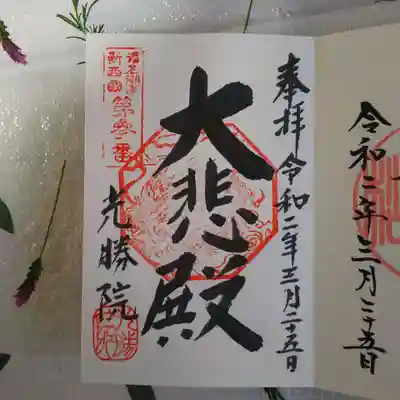 令和二年三月二十五日
奉拝 令和二年三月二十五日
大悲殿
新西國
第参番
光勝院